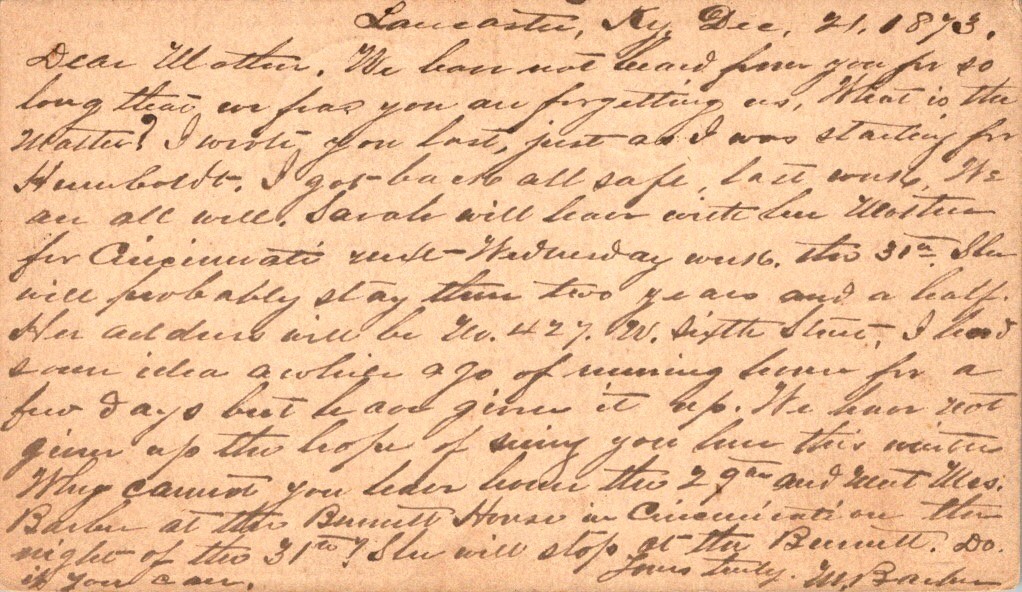 Lancaster, Ky, Dec. 21. 1873.
Dear Mother. We have not heard from you for so
long that we fear you are forgetting us. What is the
Matter? I wrote you last, just as I was starting for
Humboldt. I got back all safe, last week. We
are all well. Sarah will leave with her Mother
for Cincinnati next Wednesday week. the 31st. She
will probably stay there two years and a half.
Her address will be No. 427. W. Sixth Street, I had
some idea awhile ago of running home for a
few days but have given it up. We have not
given up the hope of seeing you here this winter
Why cannot you leave home the 29th and meet Mrs.
Barber at the Burnett House in Cincinnati on the
night of the 31st? She will stop at the Burnett. Do.
if you can.
Yours truly. M. Barber